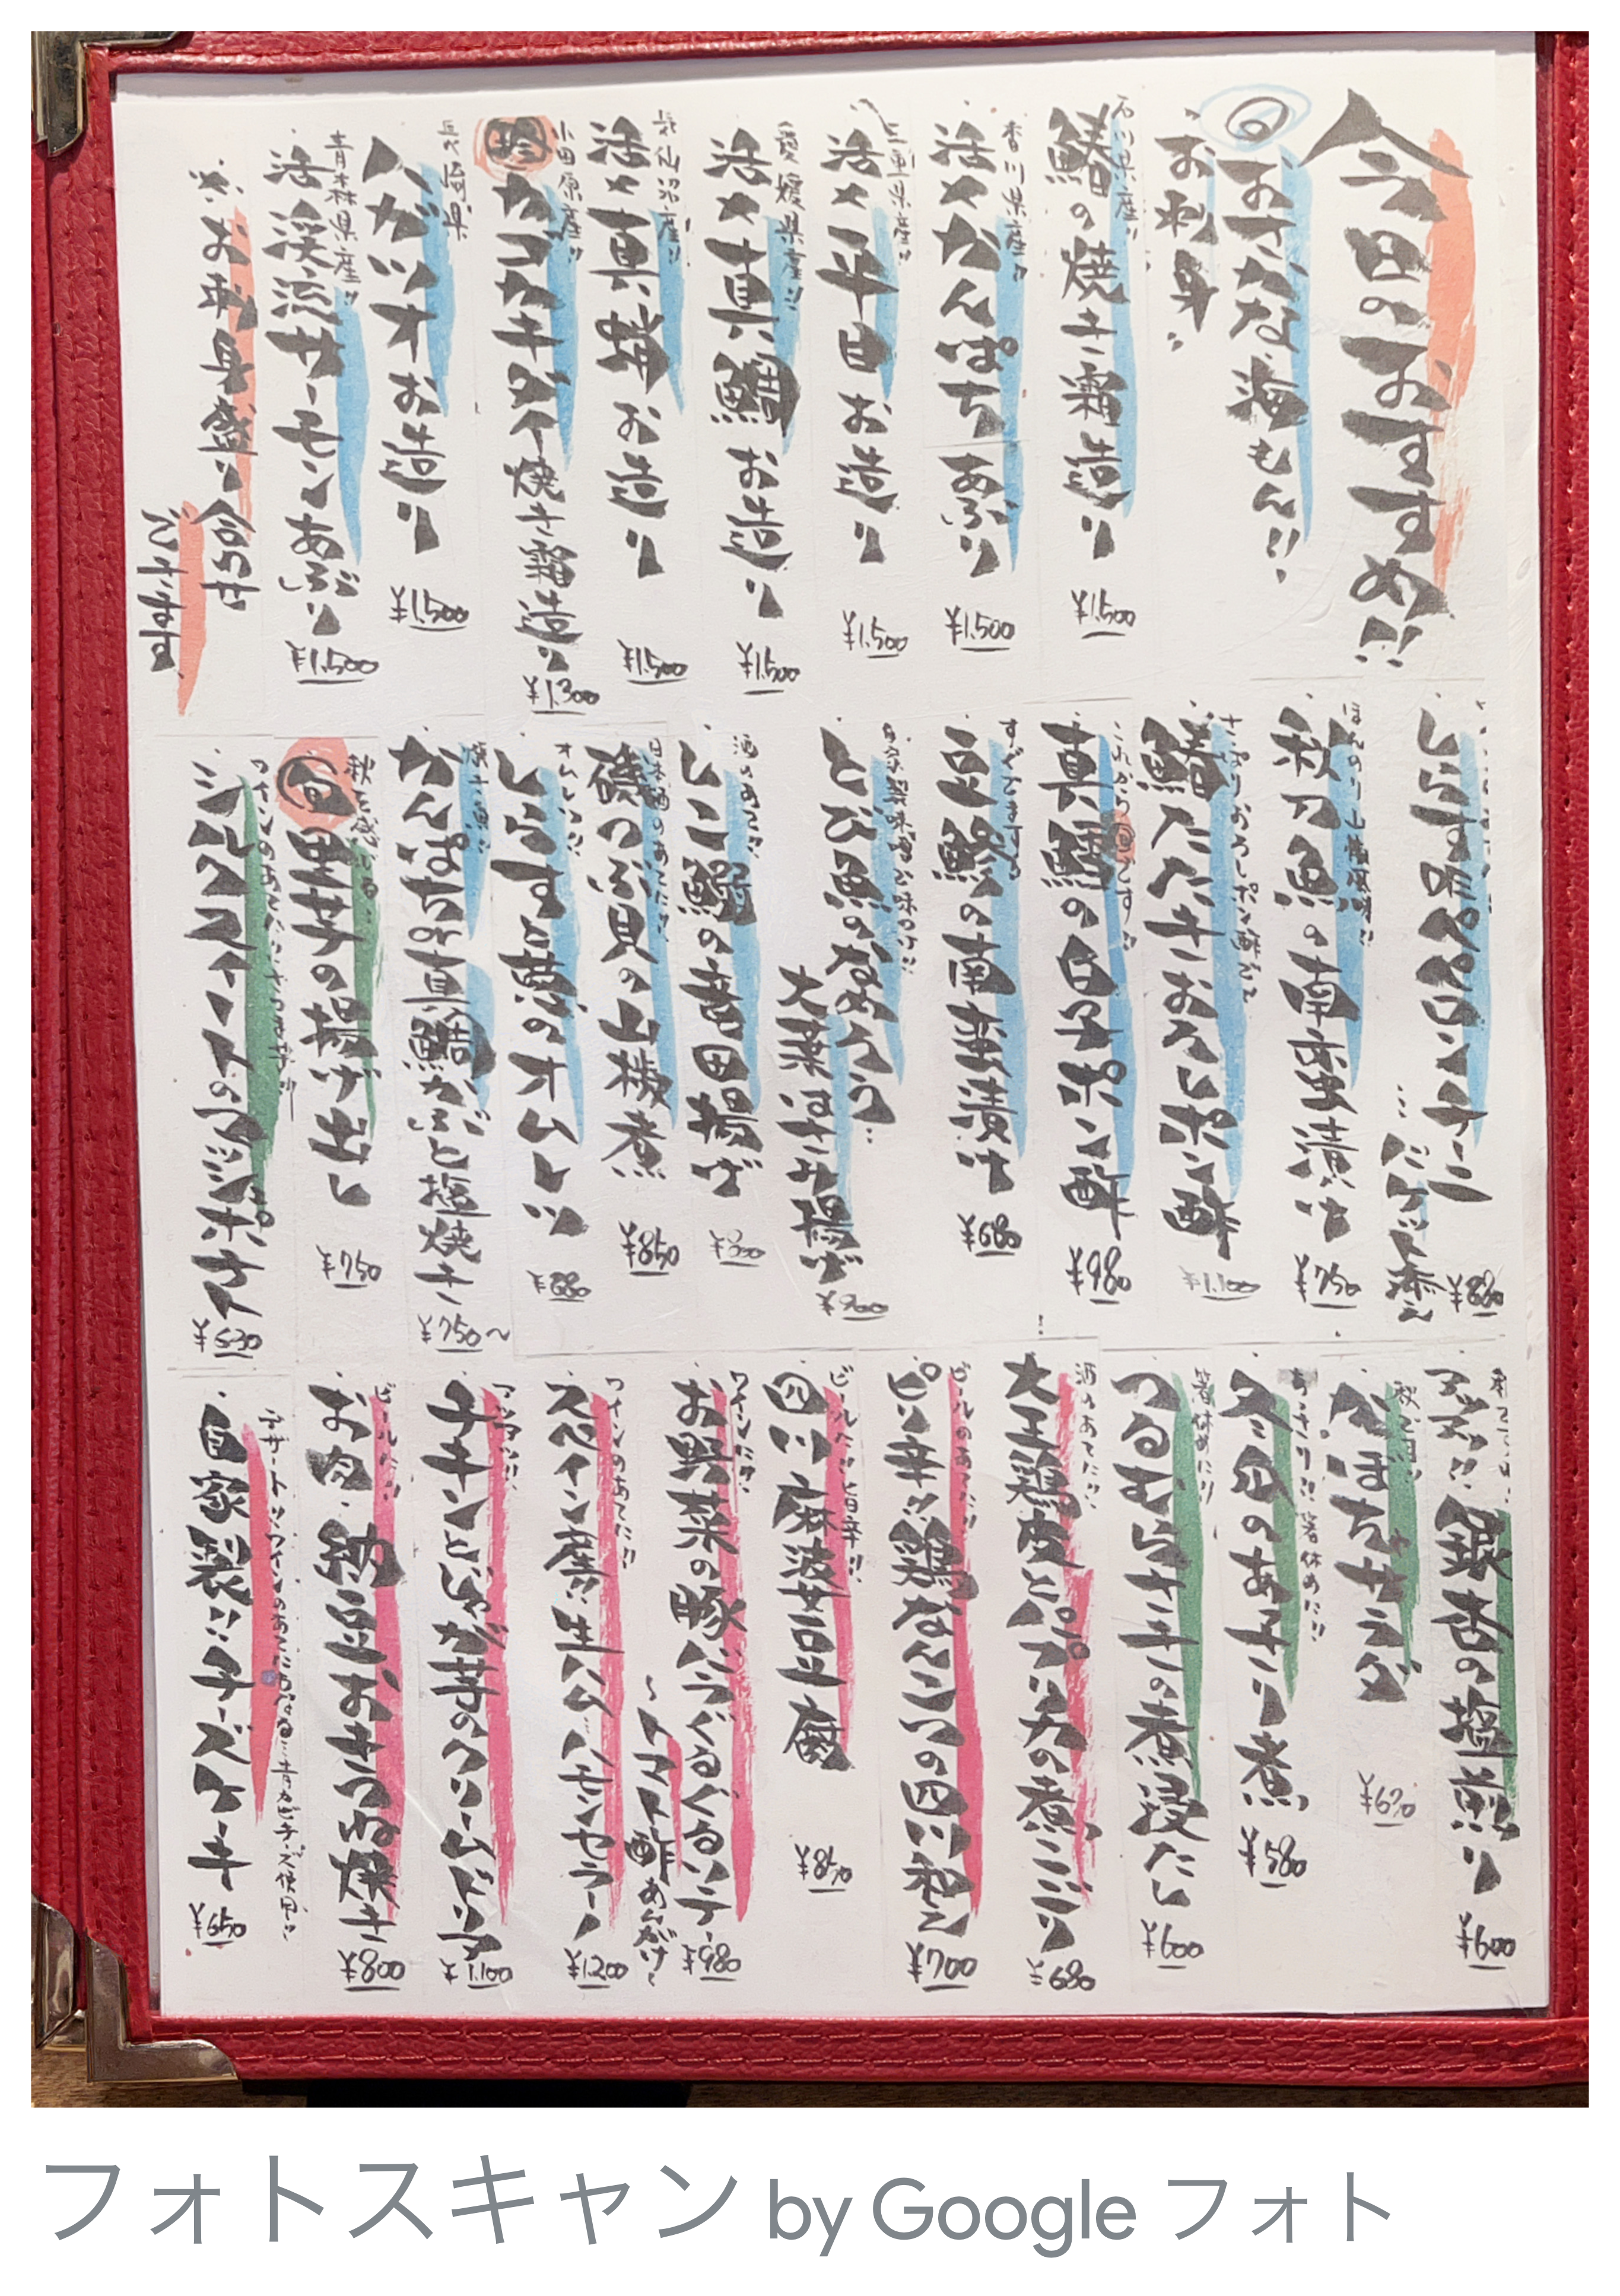 今日のおすすめ!!
旬おさかな海もん!!
お刺身
石川県産!!
鰆の焼き霜造り
¥1,500
香川県産!!
活〆かんぱちあぶり
¥1,500
三重県産!!
活〆平目お造り
¥1,500
愛媛県産!!
活〆真鯛お造り
¥1,500
気仙沼産!!
活〆真鯒お造り
¥1,500
小田原産!!
珍カゴカキダイ焼き霜造り
¥1,300
長崎県
ハガツオお造り
¥1,500
青森県産!!
活〆渓流サーモンあぶり
¥1,500
お刺身盛り合わせ
できます
しらす
ペペロンチーニ
バケット添え
秋刀魚の南蛮漬け
¥750
さっぱりおろしポン酢で
鰆たたきおろしポン酢
¥1,100
これから旬です!!
真鱈の白子ポン酢
¥980
すぐでますよ
豆鯵の南蛮漬け
¥680
自家製味噌で味つけ!!
とび魚のなめろう
大葉はさみ揚げ
酒のあてに!!
しこ鰯の竜田揚げ
日本酒のあてに!!
磯つぶ貝の山椒煮
¥850
オムレツ!!
しらすと葱のオムレツ
焼き魚!!
かんぱちor真鯛かぶと塩焼き
¥750〜
秋を感じる
旬里芋の揚げ出し
¥750
シルクスイートのマッシュポテト
銀杏の塩煎り
¥600
かぼちゃサラダ
あっさり!!箸休めに!!
冬瓜のあちゃり煮
¥580
箸休めに!!
つるむらさきの煮浸たし
¥600
酒のあてに!!
大王鶏皮とプリ天の煮こごり
¥680
ビールのあてに!!
ピリ辛!!鶏なんこつの四川和え
¥700
ビールに!!旨辛!!
四川麻婆豆腐
ワインに!!
お野菜の豚バラぐるぐるソテー
〜トマト酢あんがけ〜
¥980
ワインのあてに!!
スペイン産!!生ハムハモンセラーノ
¥1200
チキンとじゃが芋のクリームドリア
¥1,100
ビールに!!
お肉納豆おきつね焼き
¥800
デザート!!ワインのあてにもなる!青カビチーズ使用!!
自家製!!チーズケーキ
¥650
フォトスキャン by Google フォト